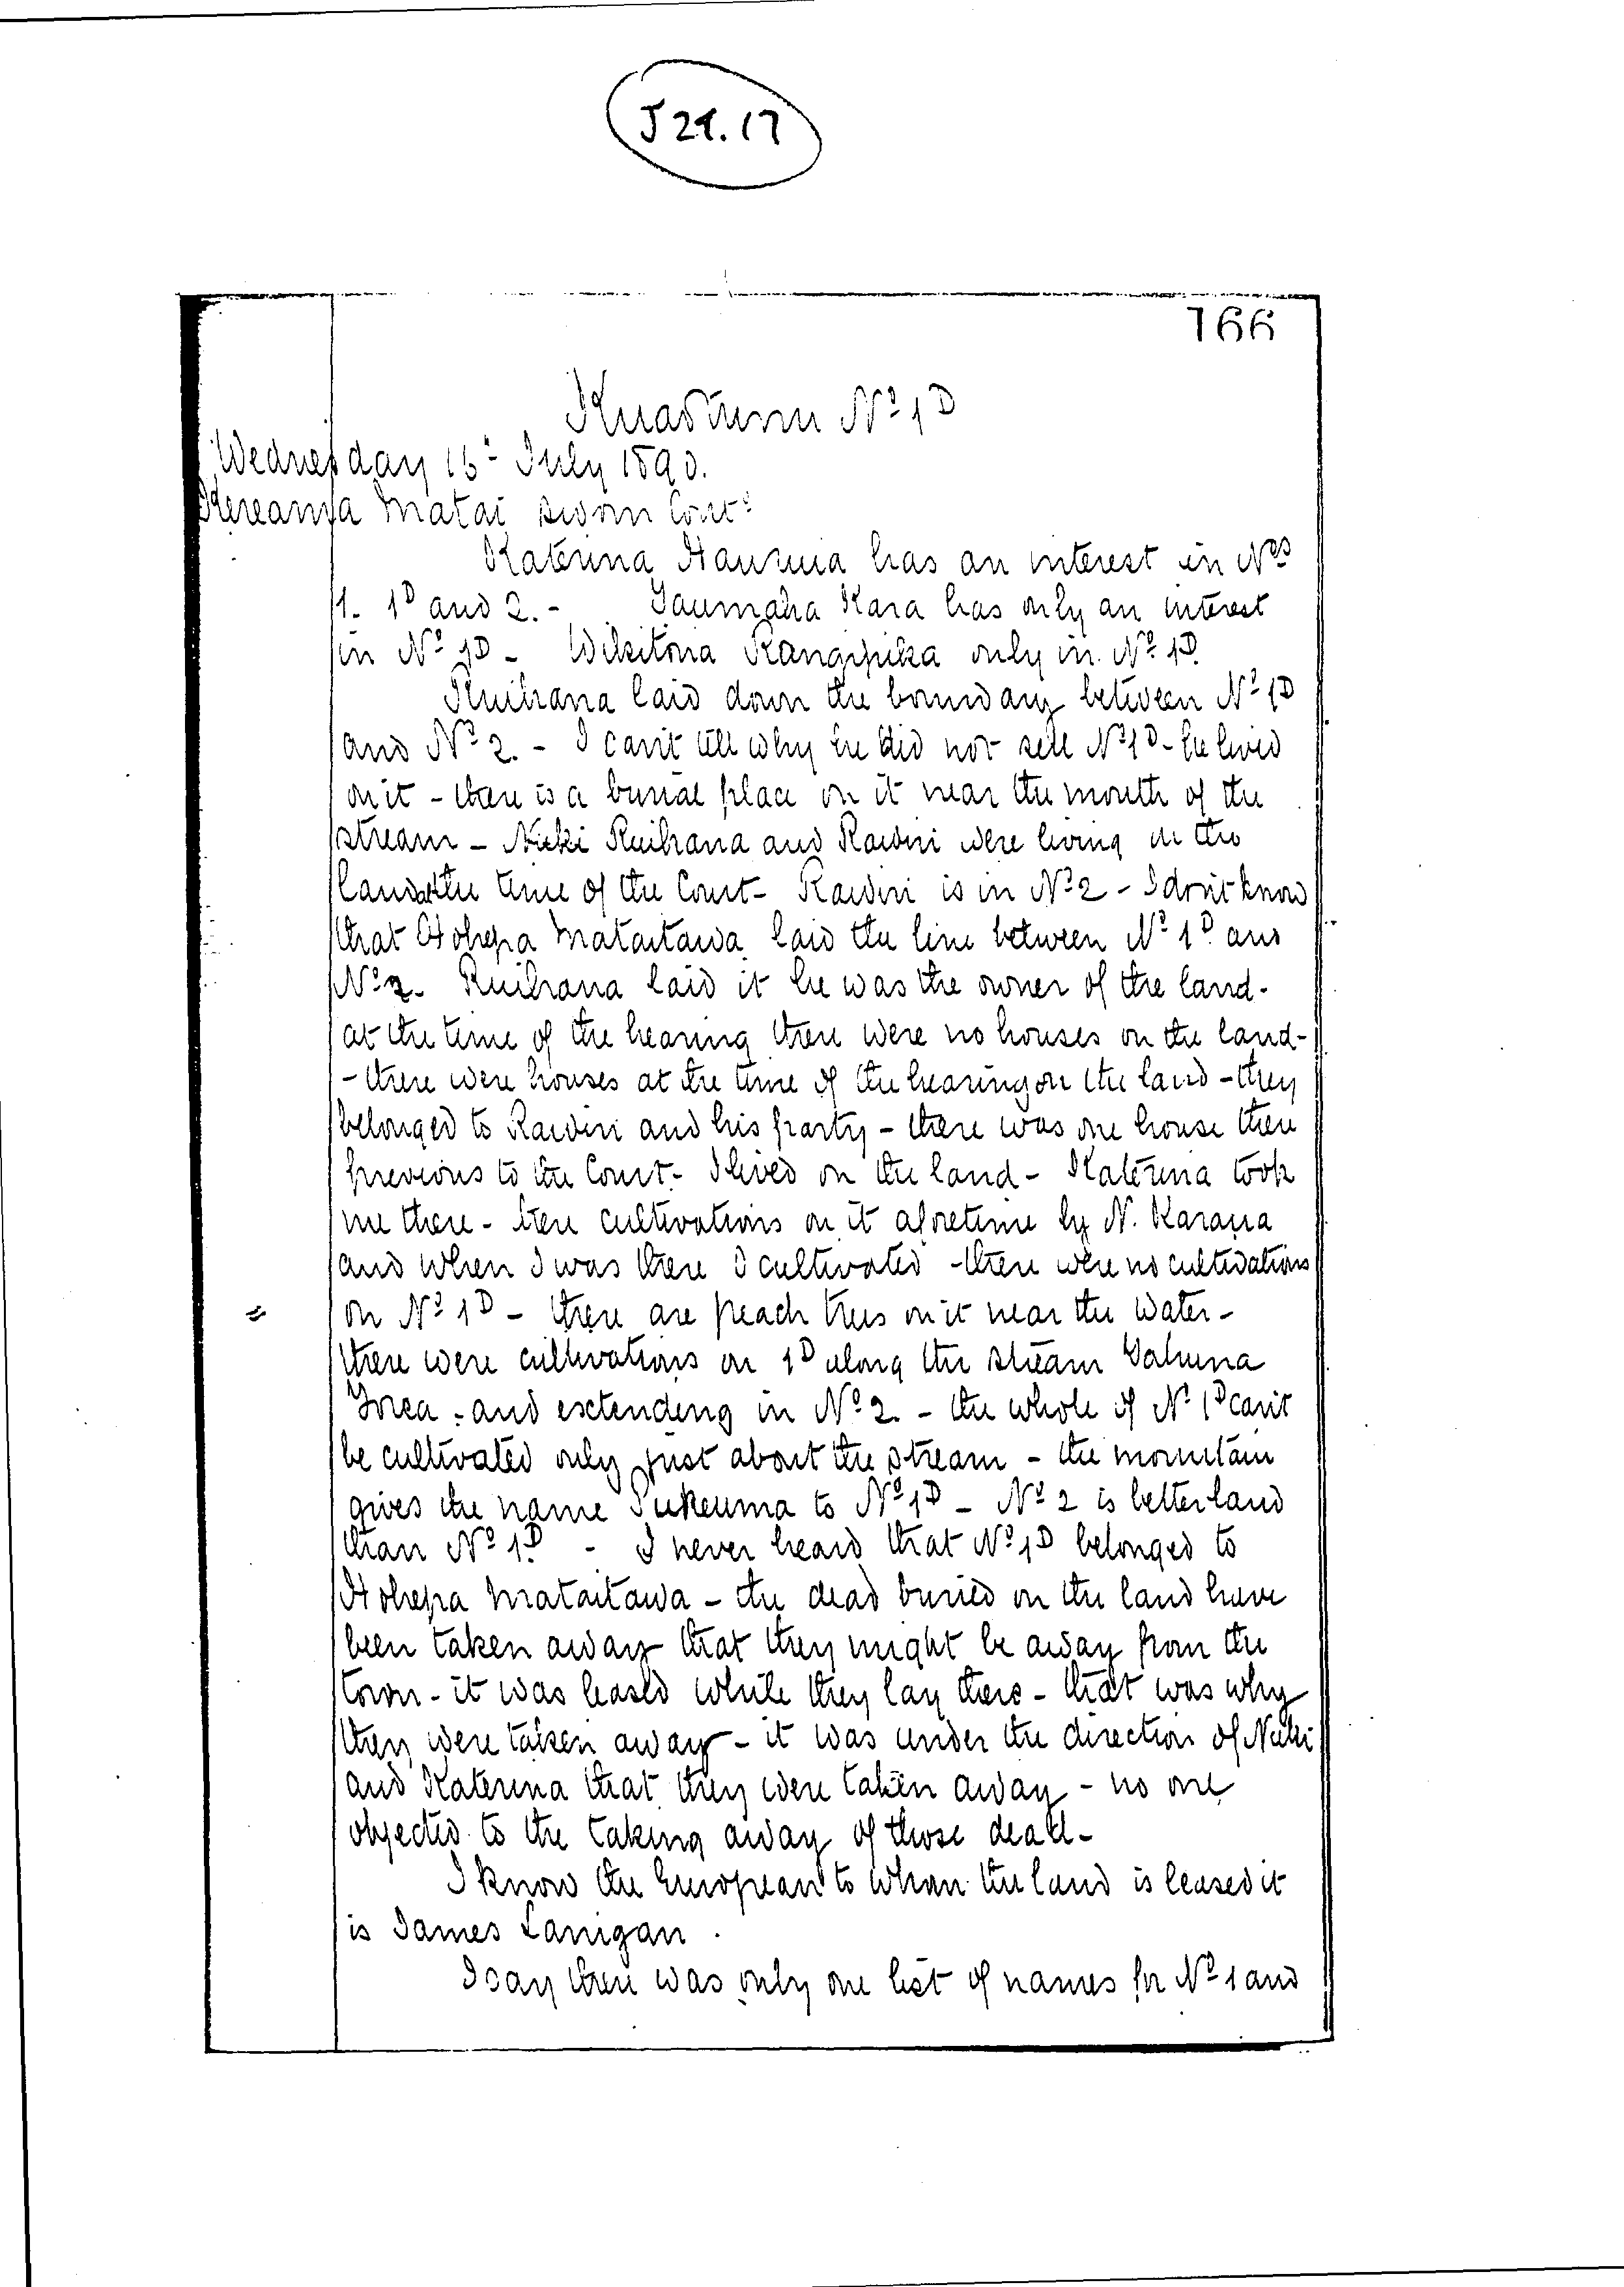 J 21.17
166
Kuaotunu No 1D
Wednesday 16th July 1890.
Hereama Matai sworn Cont:
Katerina Hauruia has an interest in Nos
1. 1D and 2. - Taumaha Kara has only an interest
in No 1D - Wikitoria Rangipika only in No 1D.
Ruihana laid down the boundary between No 1D
and No 2. - I can't tell why he did not sell No 1D - he lived
on it - there is a burial place on it near the mouth of the
stream - Ruihana and Rawiri were living on the
land at the time of the Court - Rawiri is in No 2 - I don't know
that Hohepa Mataitawa laid the line between No 1D and
No 2. Ruihana laid it he was the owner of the land -
at the time of the hearing there were no houses on the land -
- there were houses at the time of the hearing on the land - they
belonged to Rawiri and his party - there was one house there
previous to the Court - I lived on the land - Katerina took
me there - were cultivations on it aforetime by N. Karaua
and when I was there I cultivated - there were no cultivations
on No 1D - there are peach trees on it near the water -
there were cultivations on 1D along the stream
and extending in No 2. - the whole of No 1D can't
be cultivated only just about the stream - the mountain
gives the name Pukeuma to No 1D - No 2 is better land
than No 1D - I never heard that No 1D belonged to
Hohepa Mataitawa - the dead buried on the land have
been taken away that they might be away from the
town - it was leased while they lay there - that was why
they were taken away - it was under the direction of
and Katerina that they were taken away - no one
objected to the taking away of those dead -
I know the European to whom the land is leased it
is James Lanigan.
I say there was only one list of names for No 1 and